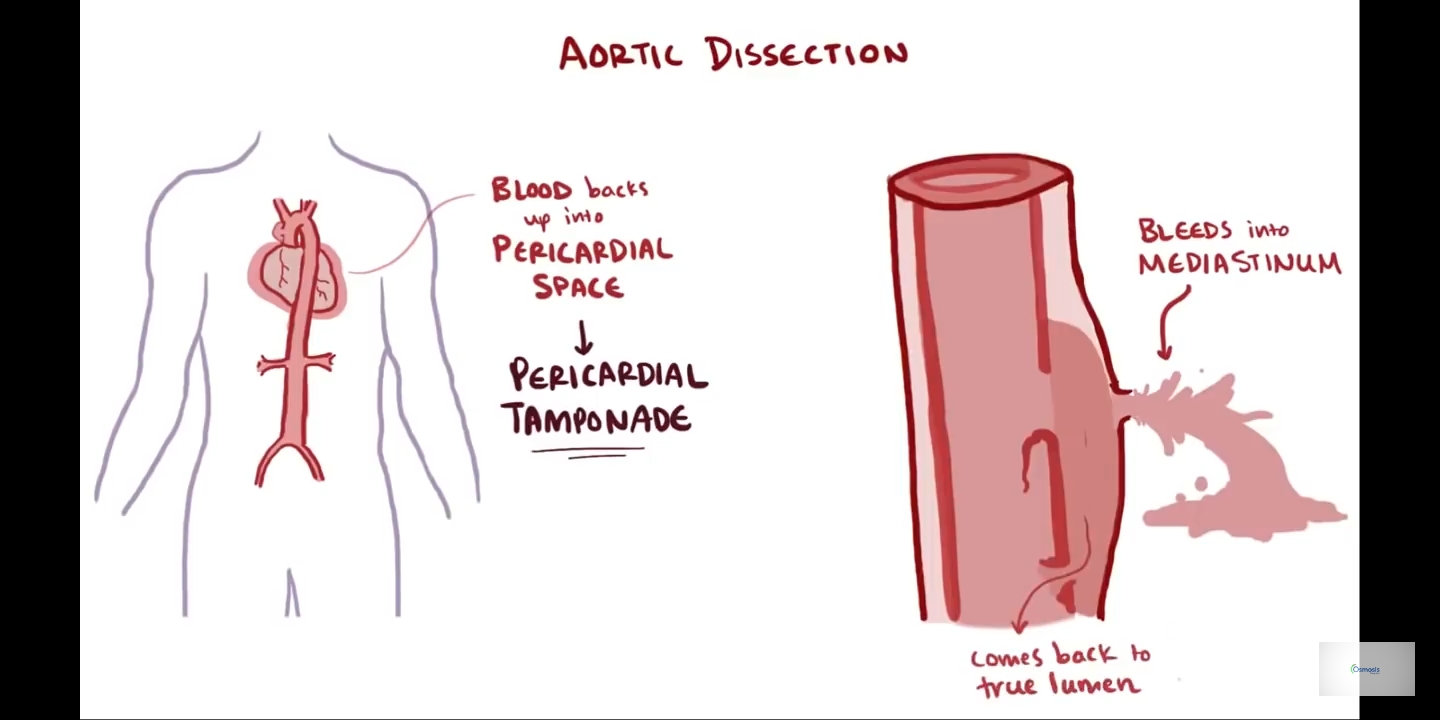 AORTIC DISSECTION
BLOOD backs
up into
PERICARDIAL
SPACE
PERICARDIAL
TAMPONADE
BLEEDS into
MEDIASTINUM
comes back to
true lumen
Osmosis